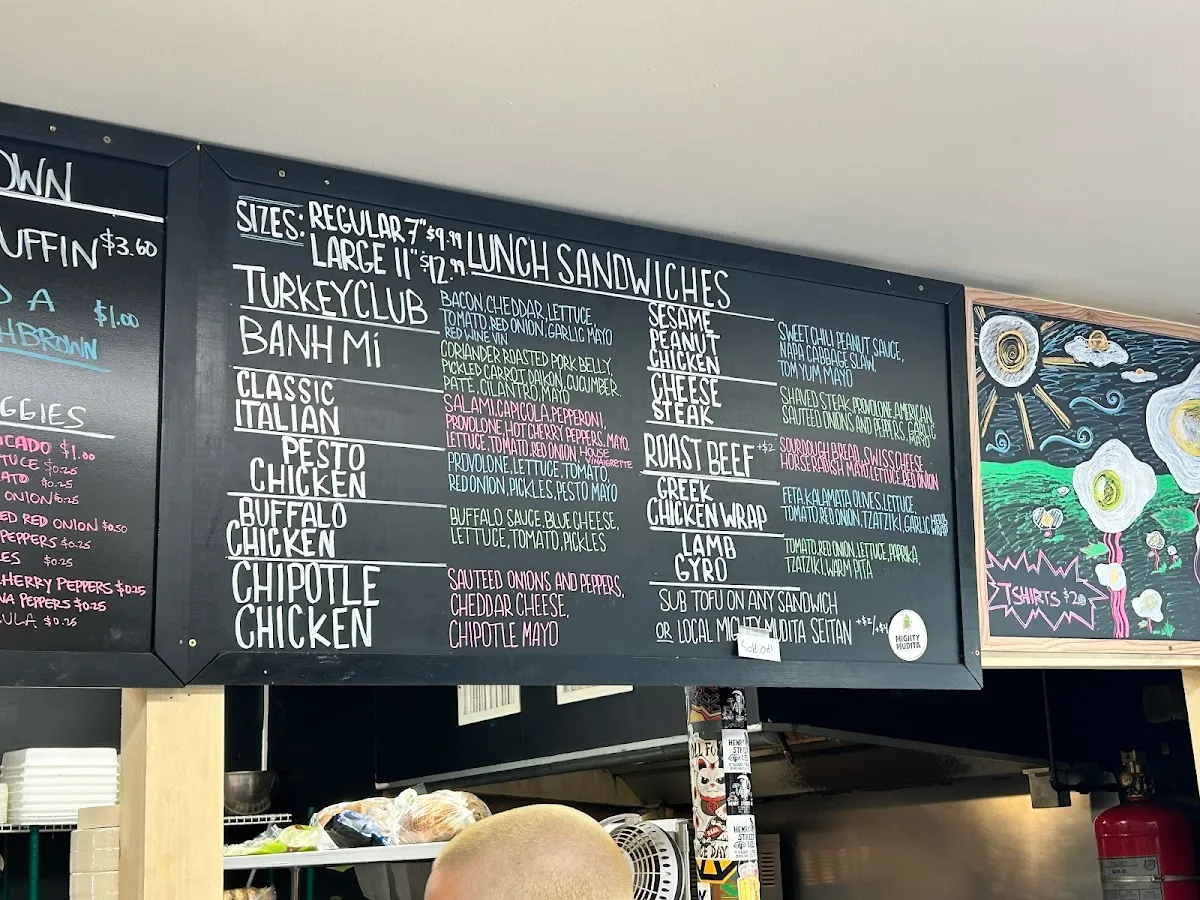 OWN
UFFIN $3.60
D A $1.00
HBROWN
GGIES
CADO $1.00
TUCE $0.25
ATO $0.25
ONION $0.25
ED RED ONION $0.50
PEPPERS $0.25
LES $0.25
HERRY PEPPERS $0.25
NA PEPPERS $0.25
ULA $0.25
SIZES: REGULAR 7" $9.99
LARGE 11" $12.99
LUNCH SANDWICHES
TURKEY CLUB
BACON, CHEDDAR, LETTUCE,
TOMATO, RED ONION, GARLIC MAYO
RED WINE VIN
BANH Mi
CORIANDER ROASTED PORK BELLY,
PICKLED CARROT, DAIKON, CUCUMBER,
PATE, CILANTRO, MAYO
CLASSIC
ITALIAN
SALAMI, CAPICOLA, PEPPERONI,
PROVOLONE, HOT CHERRY PEPPERS, MAYO,
LETTUCE, TOMATO, RED ONION, HOUSE
VINAIGRETTE
PESTO
CHICKEN
PROVOLONE, LETTUCE, TOMATO,
RED ONION, PICKLES, PESTO MAYO
BUFFALO
CHICKEN
BUFFALO SAUCE, BLUE CHEESE,
LETTUCE, TOMATO, PICKLES
CHIPOTLE
CHICKEN
SAUTEED ONIONS AND PEPPERS,
CHEDDAR CHEESE,
CHIPOTLE MAYO
SESAME
PEANUT
CHICKEN
SWEET CHILI PEANUT SAUCE,
NAPA CABBAGE SLAW,
TOM YUM MAYO
CHEESE
STEAK
SHAVED STEAK, PROVOLONE AMERICAN,
SAUTEED ONIONS AND PEPPERS, GARLIC
ROAST BEEF +$2
SOURDOUGH BREAD, SWISS CHEESE,
HORSERADISH MAYO, LETTUCE, RED ONION
GREEK
CHICKEN WRAP
FETA, KALAMATA OLIVES, LETTUCE,
TOMATO, RED ONION, TZATZIKI, GARLIC
LAMB
GYRO
TOMATO, RED ONION, LETTUCE, PAPRIKA,
TZATZIKI, WARM PITA
SUB TOFU ON ANY SANDWICH
OR LOCAL MIGHTY MUDITA SEITAN
Sold Out!
MIGHTY
MUDITA
TSHIRTS $20